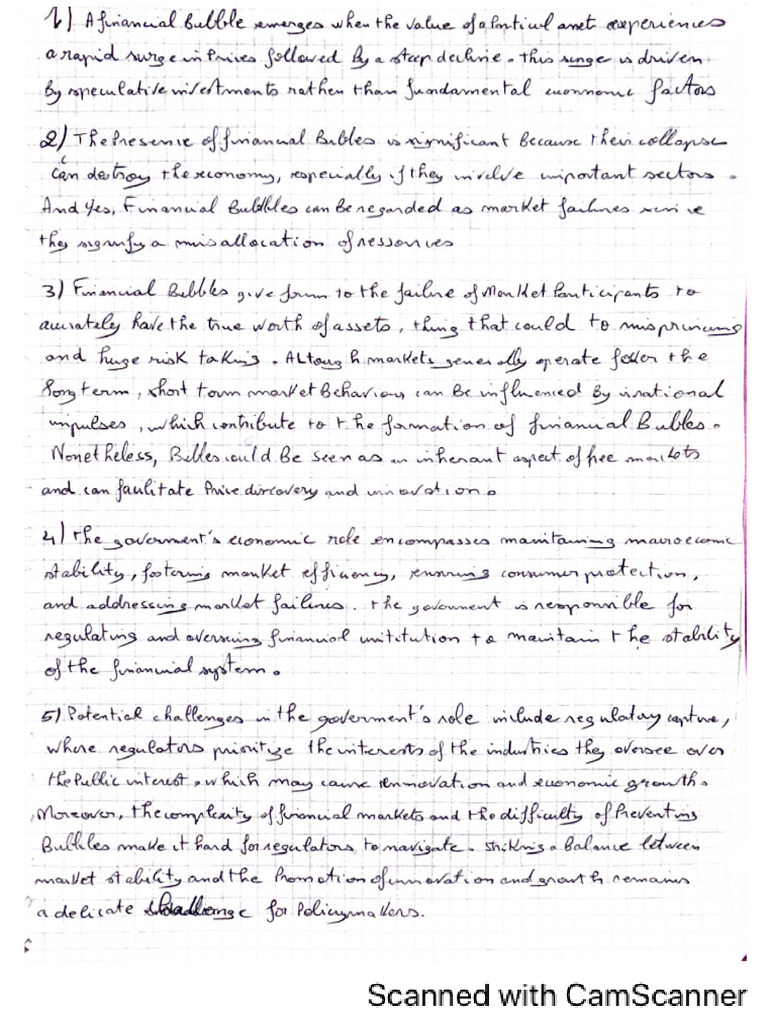 1) A financial Bubble emerges when the value of a Particul asset experiences
a rapid surge in Prices followed By a steep decline. this surge is driven
By speculative investments rather than fundamental economic factors
2) The Presence of financial Bubbles is significant Because their collapse
Can destroy the economy, especially if they involve important sectors.
And Yes, Financial Bubbles can Be regarded as market failures since
they signify a misallocation of ressources
3) Financial Bubbles give form to the failure of Market Participants to
accurately have the true worth of assets, thing that could to mispricing
and huge risk taking. Altough markets generally operate the
long term, short term market Behaviour can Be influenced By irrational
impulses, which contribute to the formation of financial Bubbles.
Nonetheless, Bubbles could Be seen as an inherant aspect of free markets
and can facilitate Price discovery and innovation.
4) the goverment's economic role encompasses maintaining macroeconomic
stability, fostering market efficiency, ensuring consumer protection,
and addressing market failures. the goverment is responsible for
regulating and overseeing financial institution to maintain the stability
of the financial system.
5) Potential challenges in the goverment's role include regulatory capture,
where regulators prioritize the interests of the industries they oversee over
the Public interest, which may cause innovation and economic growth.
Moreover, the complexity of financial markets and the difficulty of Preventing
Bubbles make it hard for regulators to navigate. striking a balance between
market stability and the Promotion of innovation and growth remains
a delicate challenge for Policymakers.
Scanned with CamScanner